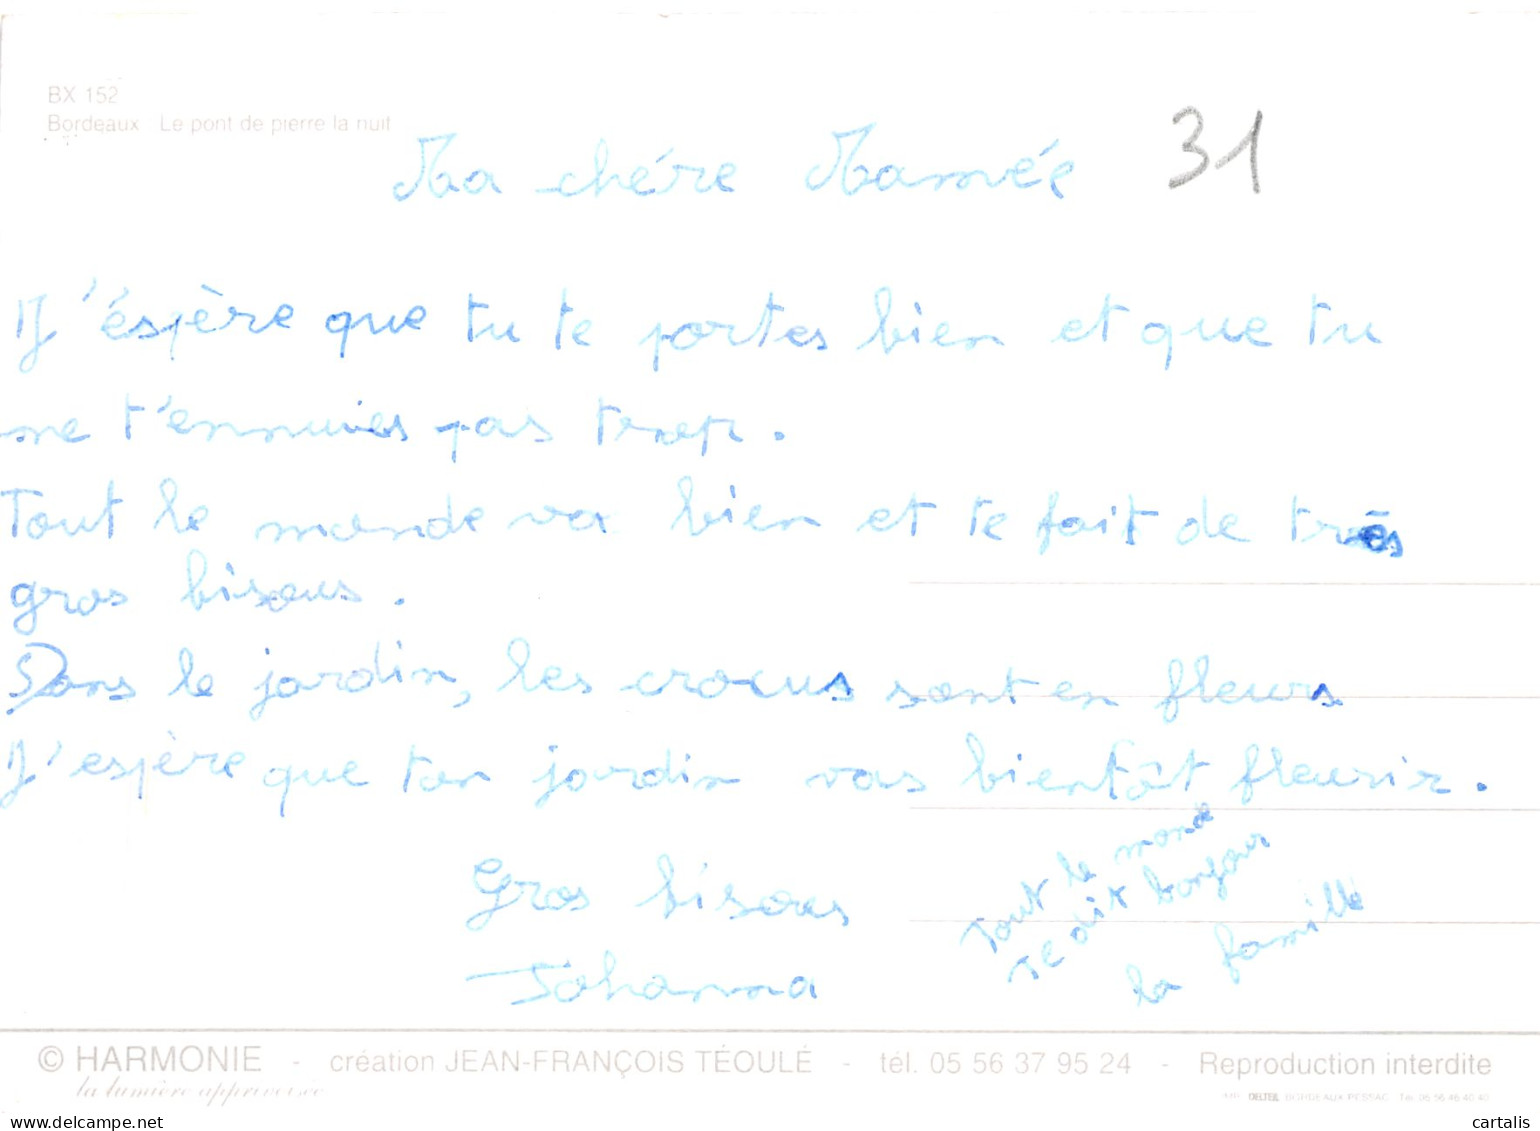 BX 152
Bordeaux Le pont de pierre la nuit
31
Ma chére Mamée
J'éspère que tu te portes bien et que tu
ne t'ennuies pas trop.
Tout le monde va bien et te fait de très
gros bisous.
Dans le jardin, les crocus sont en fleurs
J'espère que ton jardin vas bientôt fleurir.
Gros bisous
Johanna
Tout le monde
te dit bonjour
la famille
© HARMONIE - création JEAN-FRANÇOIS TÉOULÉ - tél. 05 56 37 95 24 - Reproduction interdite
la lumière apprivoisée
DELTEIL BORDEAUX-PESSAC Tél. 05 56 46 40 40
delcampe.net
cartalis